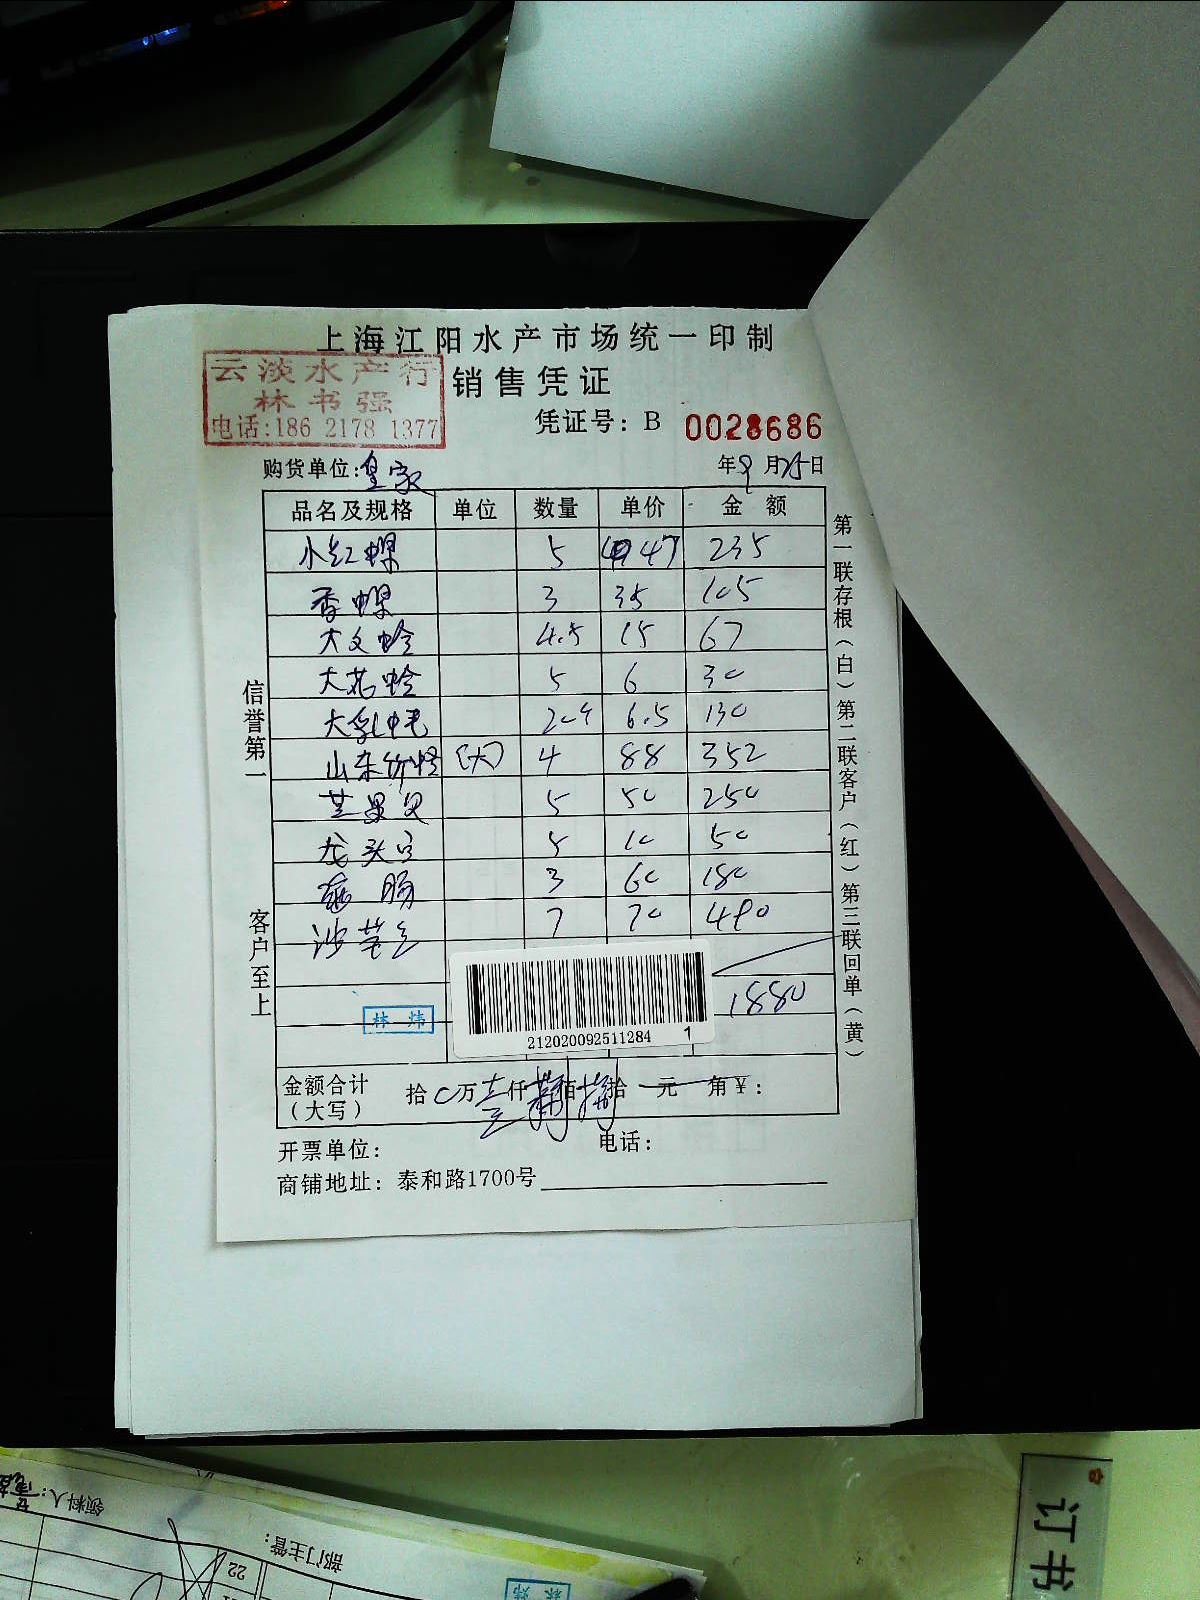 上海江阳水产市场统一印制
云淡水产行
林书强
电话:186 2178 1377
销售凭证
凭证号: B 0028686
购货单位:皇家 年9月25日
品名及规格 单位 数量 单价 金 额
小红螺 5 47 235
香螺 3 35 105
大文蛤 4.5 15 67
大花蛤 5 6 30
6.5 130
山东 (大) 4 88 352
苹果贝 5 50 250
龙头 5 10 50
肠 3 60 180
沙 7 70 490
1880
林 炜
212020092511284 1
金额合计
(大写)
拾 0万 壹仟 捌佰 捌拾 元 角 ¥:
开票单位: 电话:
商铺地址: 泰和路1700号
信誉第一
客户至上
第一联存根(白)第二联客户(红)第三联回单(黄)
领料人:
部门主管:
22
林 炜
订书